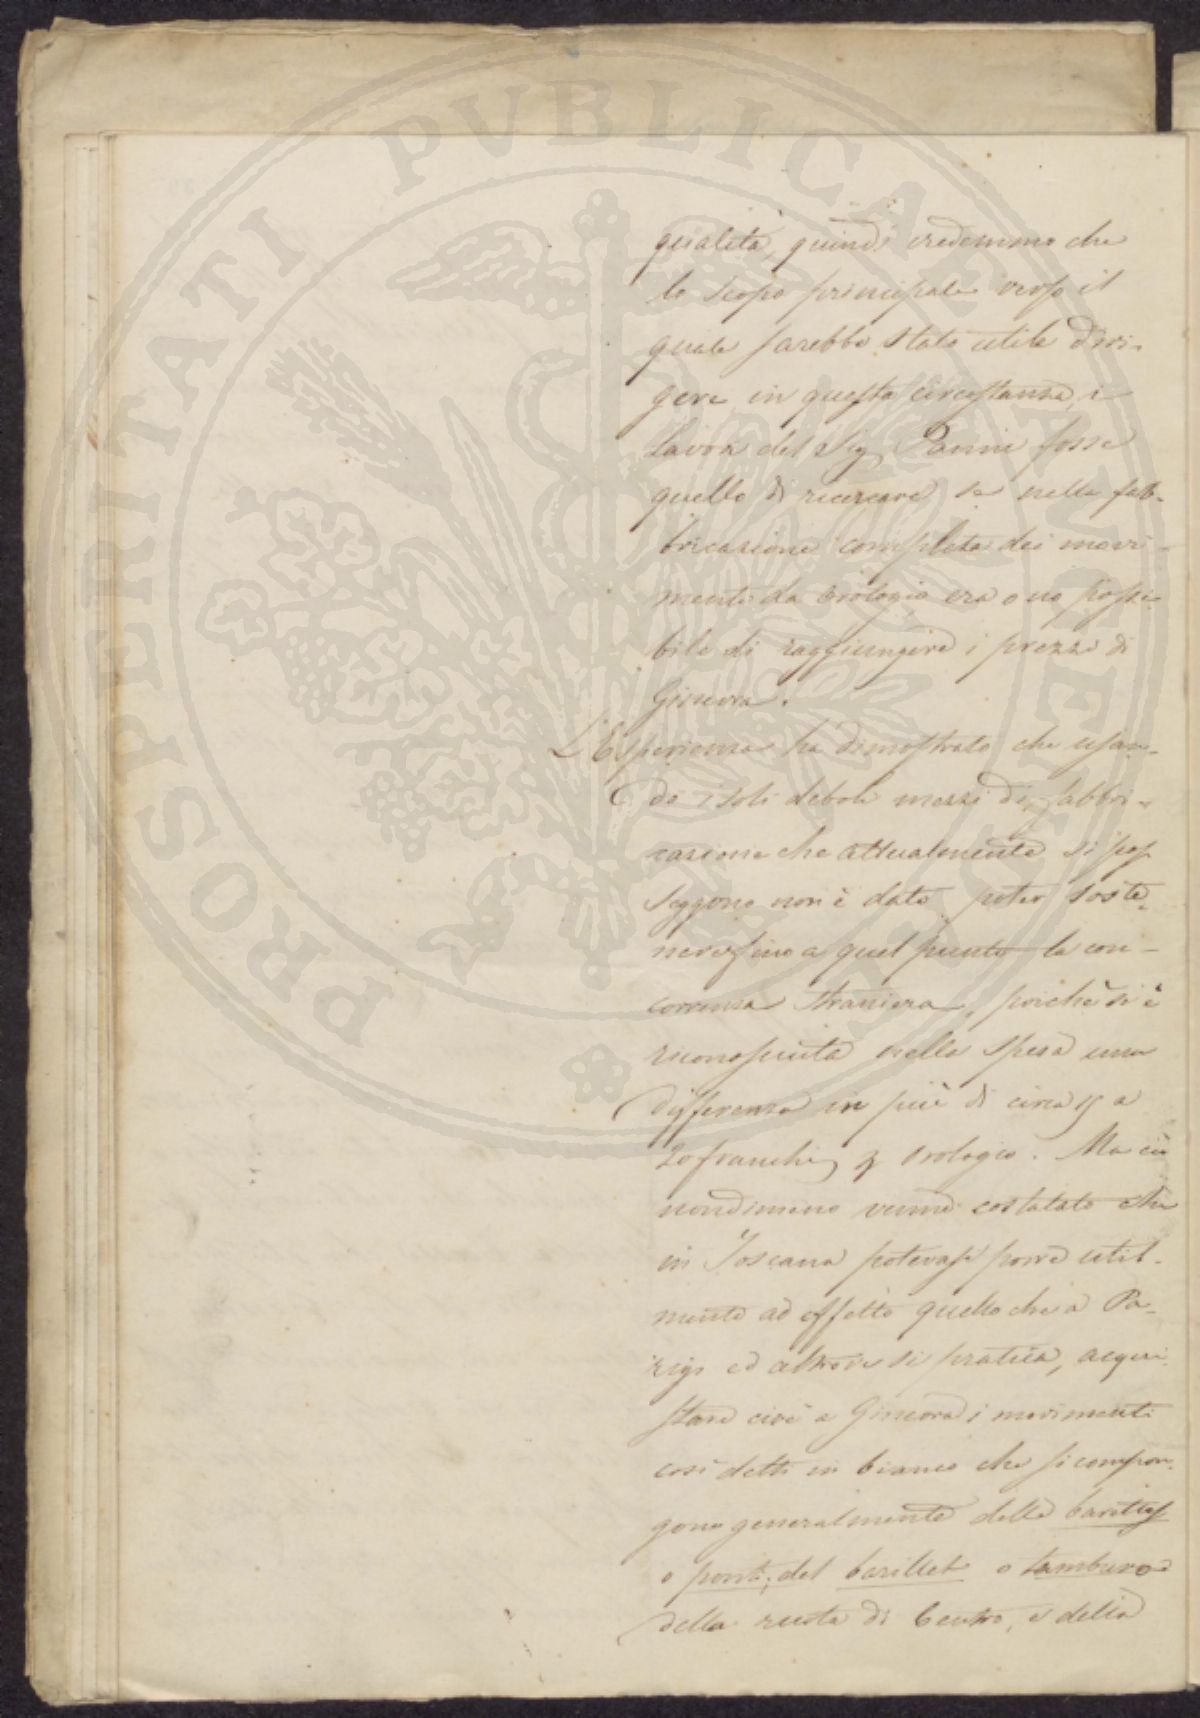 PROSPERITATI PVBLICAE AVGENDAE
qualità, quindi credemmo che
lo scopo principale verso il
quale sarebbe stato utile diri-
gere in questa circostanza i
lavori del Sig. Pannie fosse
quello di ricercare se nella fab-
bricazione completa dei movi-
menti da orologio era o no possi
bile di raggiungere i prezzi di
Ginevra.
L'Esperienza ha dimostrato che usan-
do i soli deboli mezzi di fabbri-
cazione che attualmente si pos
seggono non è dato poter soste-
nere fino a quel punto la con-
correnza straniera, poichè si è
riconosciuta nella spesa una
differenza in più di circa 15 a
20 franchi p orologio. Ma ciò
nondimeno venne costatato che
in Toscana potevasi porre util-
mente ad effetto quello che a Pa-
rigi ed altrove si pratica, acqui-
stare cioè a Ginevra i movimenti
così detti in bianco che si compon-
gono generalmente delle barettes
o ponti, del barillet o tamburo
della ruota di Centro, e della